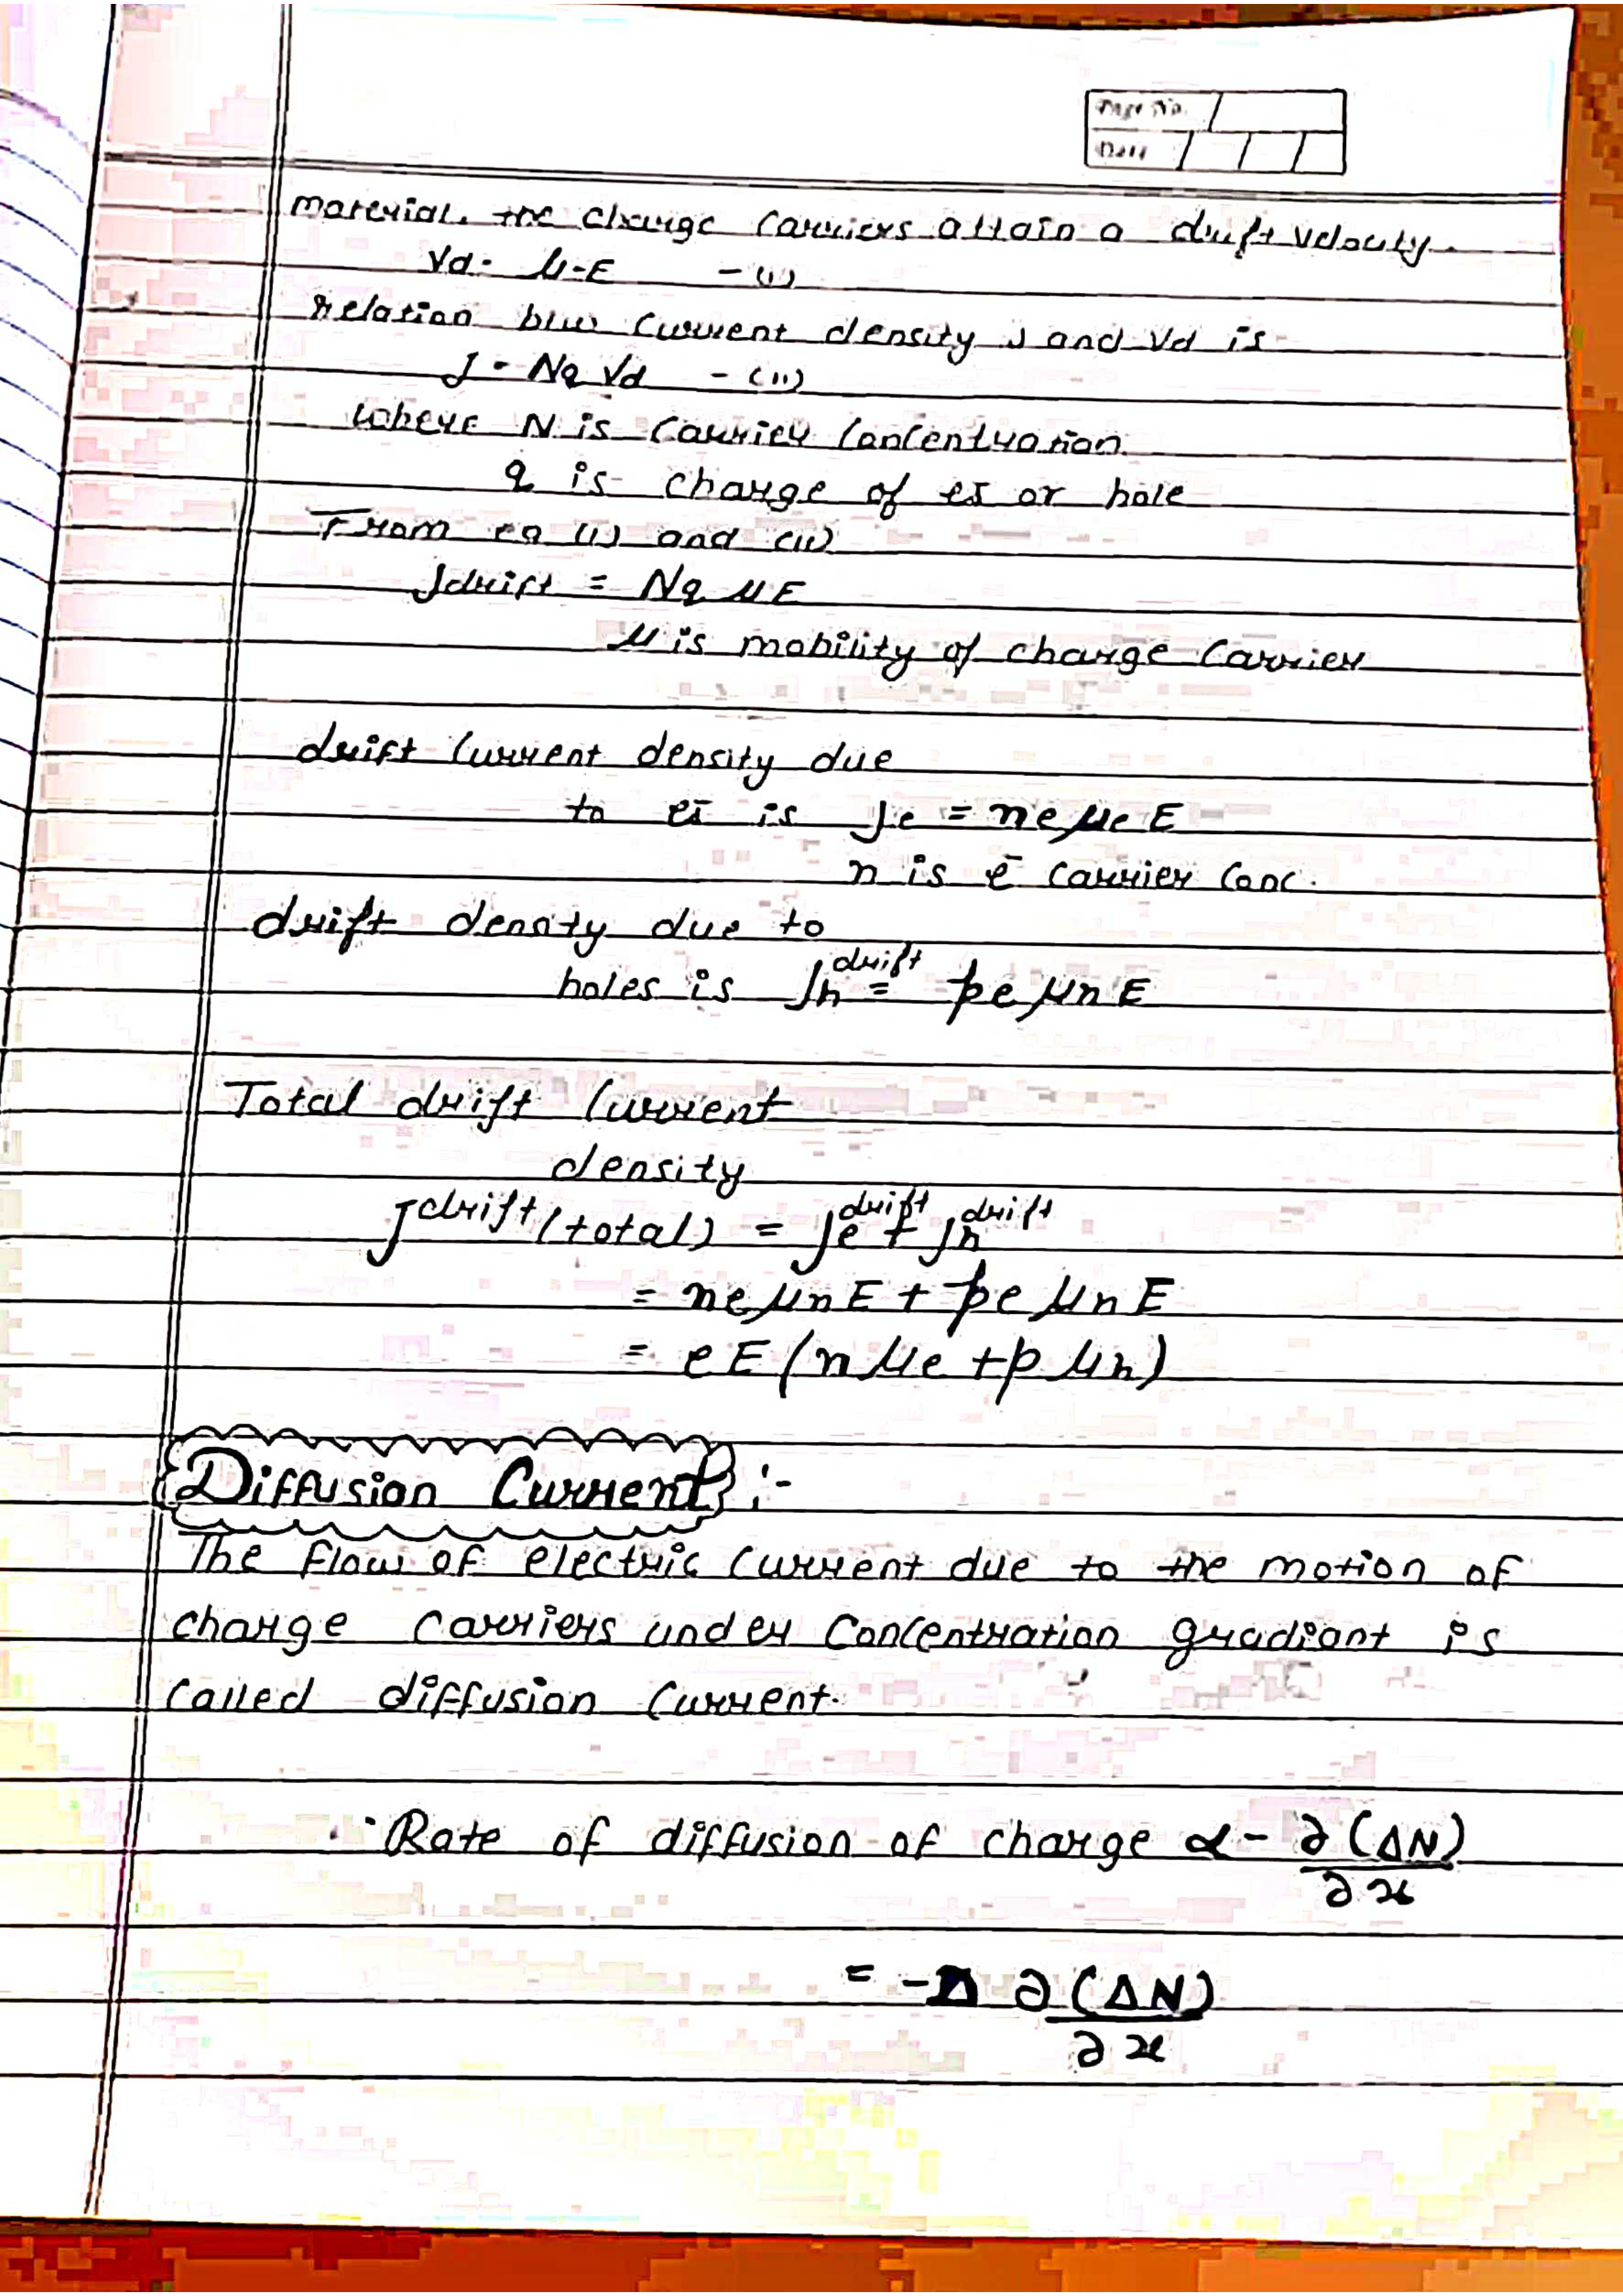 Page No.
Date
material, the charge carriers attain a drift velocity.
Vd = μ-E - (i)
relation b/w current density J and Vd is
J = Nq Vd - (ii)
where N is carrier concentration
q is charge of es or hole
From eq (i) and (ii)
Jdrift = Nq μE
μ is mobility of charge carrier
drift current density due
to es is Je = neμeE
n is ē carrier conc.
drift density due to
holes is Jh^drift = peμhE
Total drift current
density
J^drift (total) = Je^drift + Jh^drift
= neμnE + peμhE
= eE(nμe + pμh)
Diffusion Current :-
The flow of electric current due to the motion of
charge carriers under concentration gradiant is
called diffusion current.
Rate of diffusion of charge α - ∂(ΔN)/∂x
= -D ∂(ΔN)/∂x